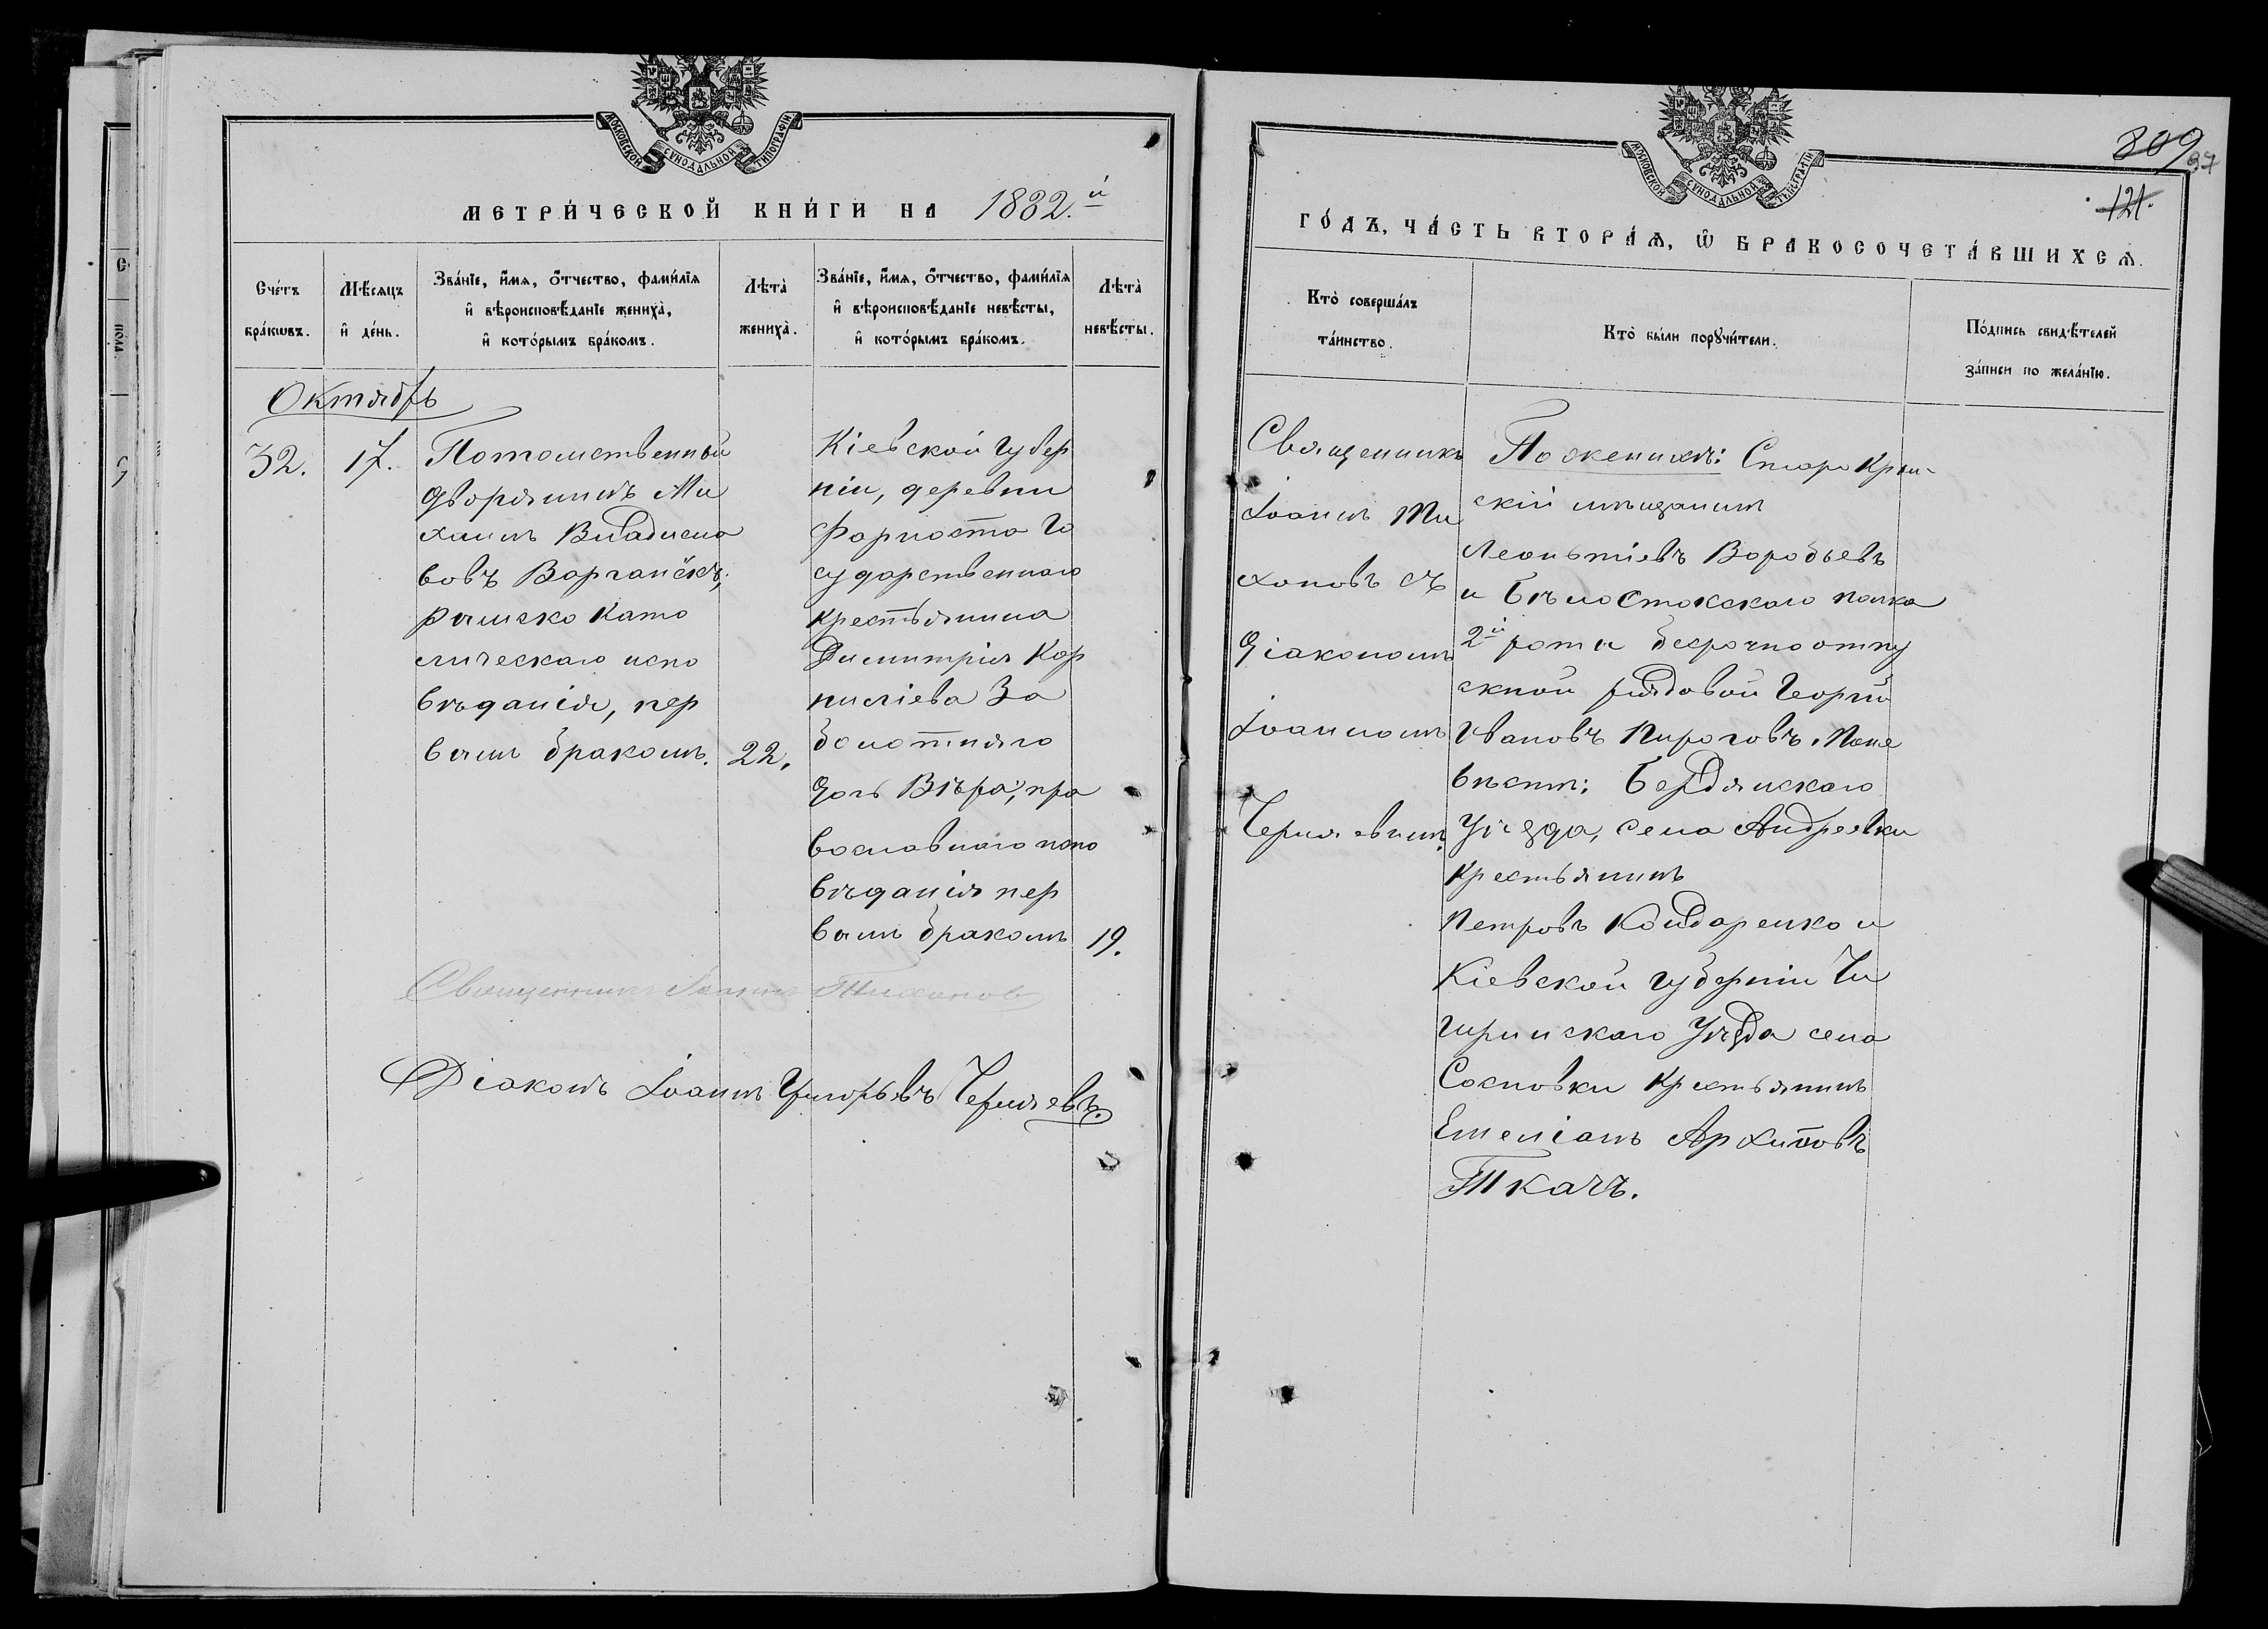 МОСКОВСКОЙ СѴНОДАЛЬНОЙ ТИПОГРАФІИ
МЕТРИ́ЧЕСКОЙ КНИ́ГИ НА 1882.й
Сче́тъ бра́кѡвъ.
Мѣ́сяцъ и҆ де́нь.
Зва́нїе, и҆́мя, ѻ҆́тчество, фами́лїя
и҆ вѣроисповѣ́данїе жениха̀,
и҆ кото́рымъ бра́комъ.
Лѣта̀
жениха̀.
Зва́нїе, и҆́мя, ѻ҆́тчество, фами́лїя
и҆ вѣроисповѣ́данїе невѣ́сты,
и҆ кото́рымъ бра́комъ.
Лѣта̀
невѣ́сты.
Октябрь
32.
17.
Потомственный
дворянинъ Ми
хаилъ Владисла
вовъ
римско като
лическаго испо
вѣданія, пер
вымъ бракомъ.
22.
Кіевской губер
ніи, деревни
Форпоста Го
сударственнаго
крестьянина
Димитрія Кор
ниліева За
болотняго
дочь Вѣра, пра
вославнаго испо
вѣданія пер
вымъ бракомъ
19.
Священникъ Іоаннъ Тихановъ
Діаконъ Іоаннъ Григорьевъ Черняевъ.
МОСКОВСКОЙ СѴНОДАЛЬНОЙ ТИПОГРАФІИ
809
97
121.
ГО́ДЪ, ЧА́СТЬ ВТОРА́Ѧ, Ѡ҆ БРАКОСОЧЕТА́ВШИХСѦ.
Кто̀ соверша́лъ
та́инство.
Кто̀ бы́ли порꙋчи́тели.
По́дпись свидѣ́телей
за́писи по жела́нїю.
Священникъ
Іоаннъ Ти
хановъ съ
діакономъ
Іоанномъ
Черняевымъ.
По женихѣ: Старо Крым
скій мѣщанинъ
Леонтіевъ Воробьевъ
и Бѣлостокскаго полка
2й роты безсрочно отпу
скной рядовой Георгій
Ивановъ Пироговъ. По не
вѣстѣ: Бердянскаго
Уѣзда, села Андреевки
крестьянинъ
Петровъ Кондаренко и
Кіевской губерніи Чи
гиринскаго Уѣзда села
Сосновки крестьянинъ
Емеліанъ Архиповъ
Ткачъ.